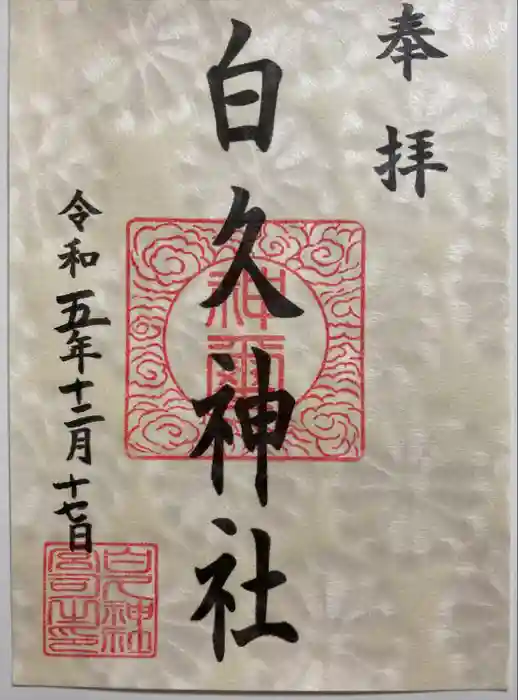 奉拝
白久神社
令和五年十二月十七日
神璽
白久神社
宮司之印